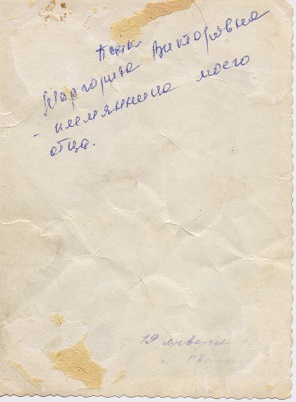 Маргорита Викторовна
- племянница моего
отца.
19 января
г.